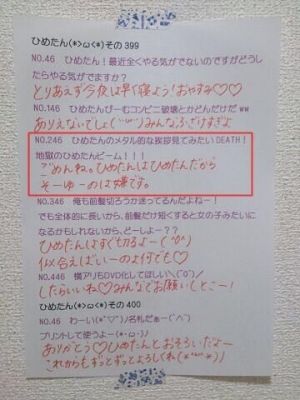 ひめたん(*>ω<*)その 399
NO.46　ひめたん！最近全くやる気がでないのですがどうし
たらやる気がでますか？
とりあえず今夜は早く寝よう！おやすみ♡♡
NO.146　ひめたんびーむコンビニ破壊とかどんだけだｗｗ
ありえないでしょ(´･ω･`)みんなふざけすぎよ
NO.246　ひめたんのメタル的な挨拶見てみたいDEATH！
地獄のひめたんビーム！！！
ごめんね。ひめたんはひめたんだから
そーゆーのは嫌です。
NO.346　俺も前髪切ろうか迷ってるんだよねー！
でも全体的に長いから、前髪だけ短くすると女の子みたいに
なるかもしれないから、どーしよー？？
ひめたんはすぐもどるよー(^0^)
似合えばいーのよ何でも♡
NO.446　横アリもDVD化してほしい＼(^o^)／
したらいいね♡みんなでお願いしとこー！
ひめたん(*>ω<*)その 400
NO.46　わーい(*^▽^)/名札だぁー(^∧^)
プリントして使うよー(*･ω･)ﾉ
ありがとう♡ひめたんとおそろいだよー
これからもずっとずっとよろしくね(*^ー^*)ﾉ